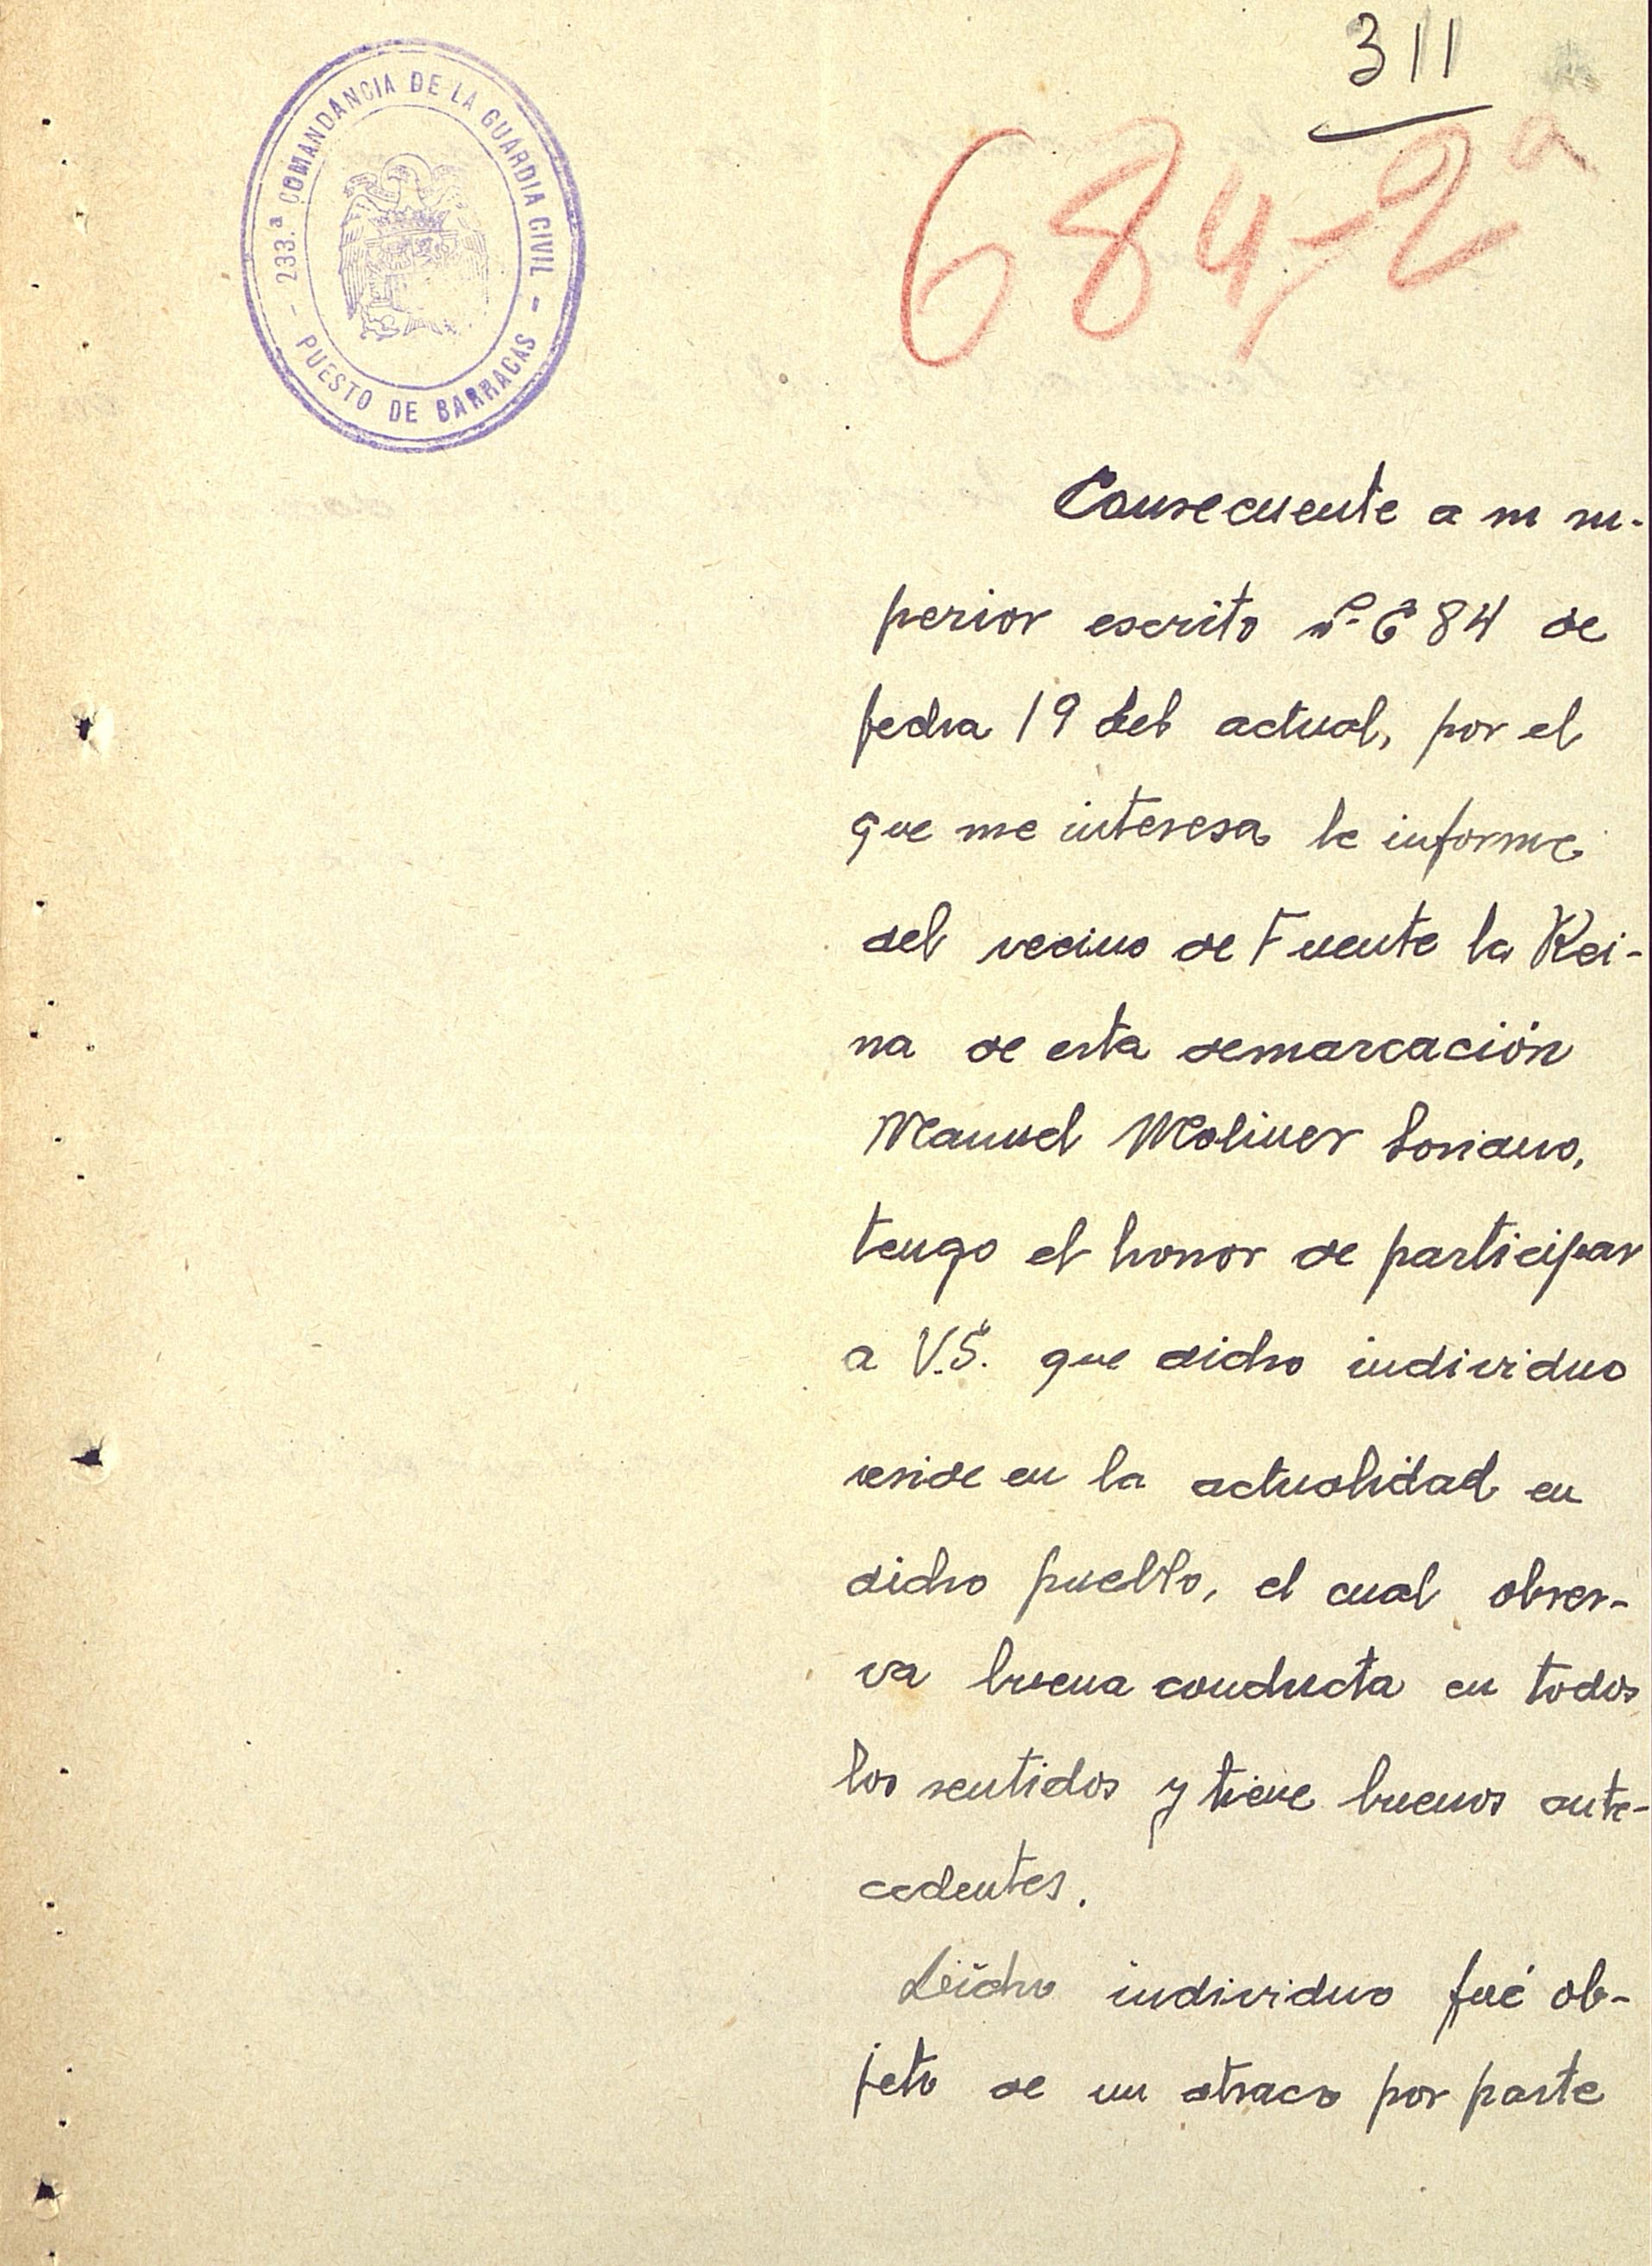 311
684-2ª
233.ª COMANDANCIA DE LA GUARDIA CIVIL
- PUESTO DE BARRACAS -
Consecuente a su su-
perior escrito nº 684 de
fecha 19 del actual, por el
que me interesa le informe
del vecino de Fuente la Rei-
na de esta demarcación
Manuel Moliner Soriano,
tengo el honor de participar
a V.S. que dicho individuo
reside en la actualidad en
dicho pueblo, el cual obser-
va buena conducta en todos
los sentidos y tiene buenos ante-
cedentes.
Dicho individuo fué ob-
jeto de un atraco por parte